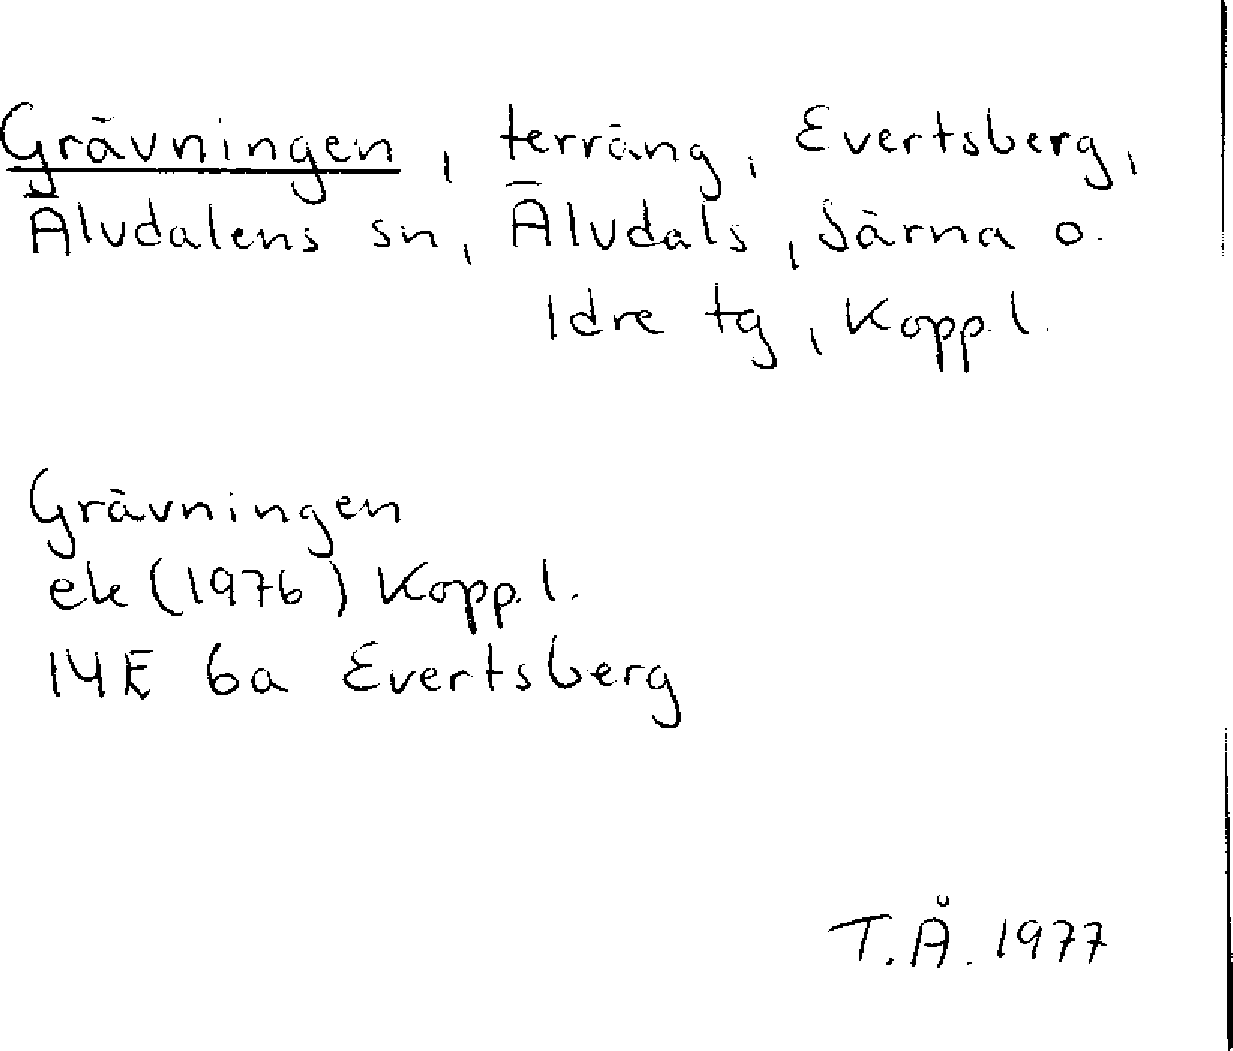 Grävningen, terräng, Evertsberg,
Älvdalens sn, Älvdals, Särna o.
Idre tg, Kopp.l.
Grävningen
ek (1976) Kopp.l.
14E 6a Evertsberg
T.Å. 1977